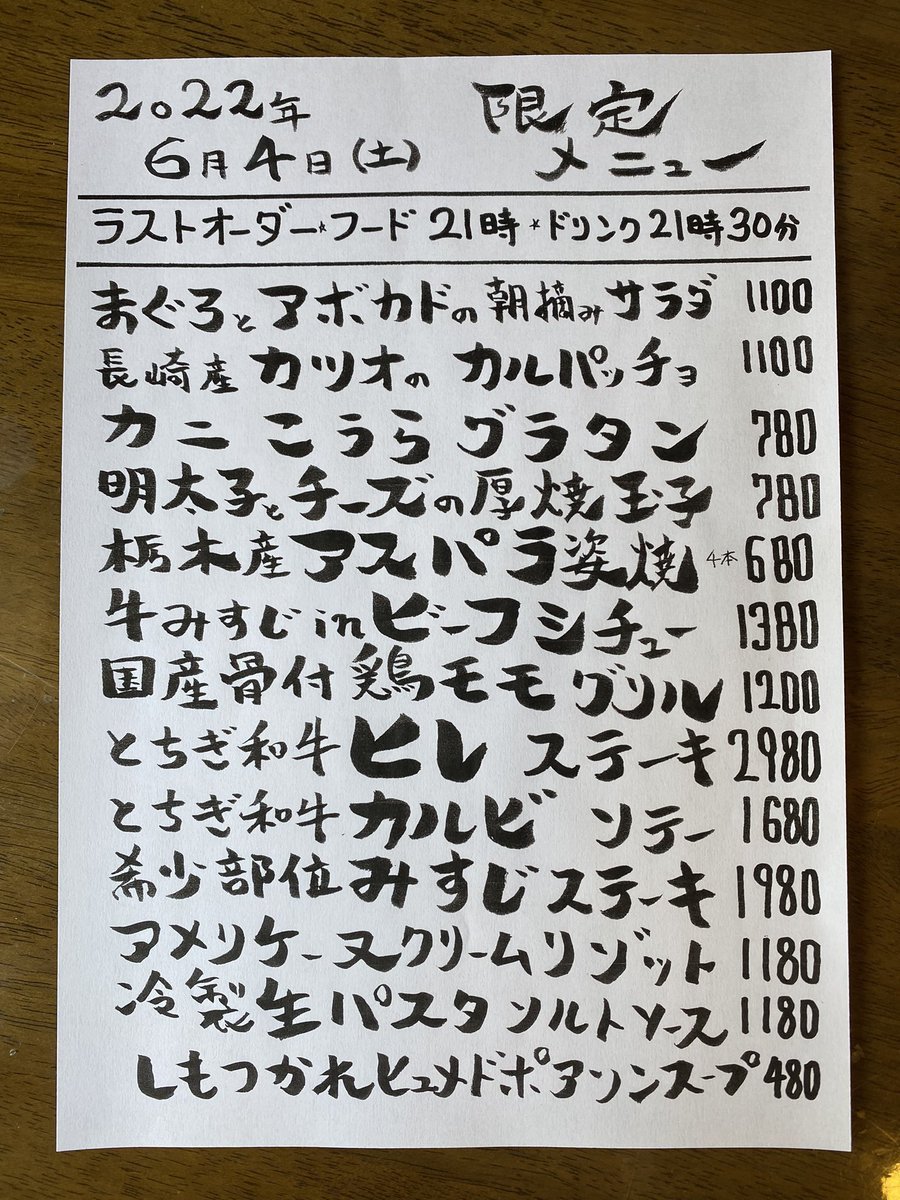 2022年 限定
6月4日(土) メニュー
ラストオーダー*フード 21時 *ドリンク21時30分
まぐろとアボカドの朝摘みサラダ 1100
長崎産カツオのカルパッチョ 1100
カニこうらグラタン 780
明太子とチーズの厚焼玉子 780
栃木産アスパラ姿焼 4本 680
牛みすじinビーフシチュー 1380
国産骨付鶏モモグリル 1200
とちぎ和牛ヒレステーキ 2980
とちぎ和牛カルビソテー 1680
希少部位みすじステーキ 1980
アメリケーヌクリームリゾット 1180
冷製生パスタソルトソース 1180
しもつかれヒュメドポアソンスープ 480